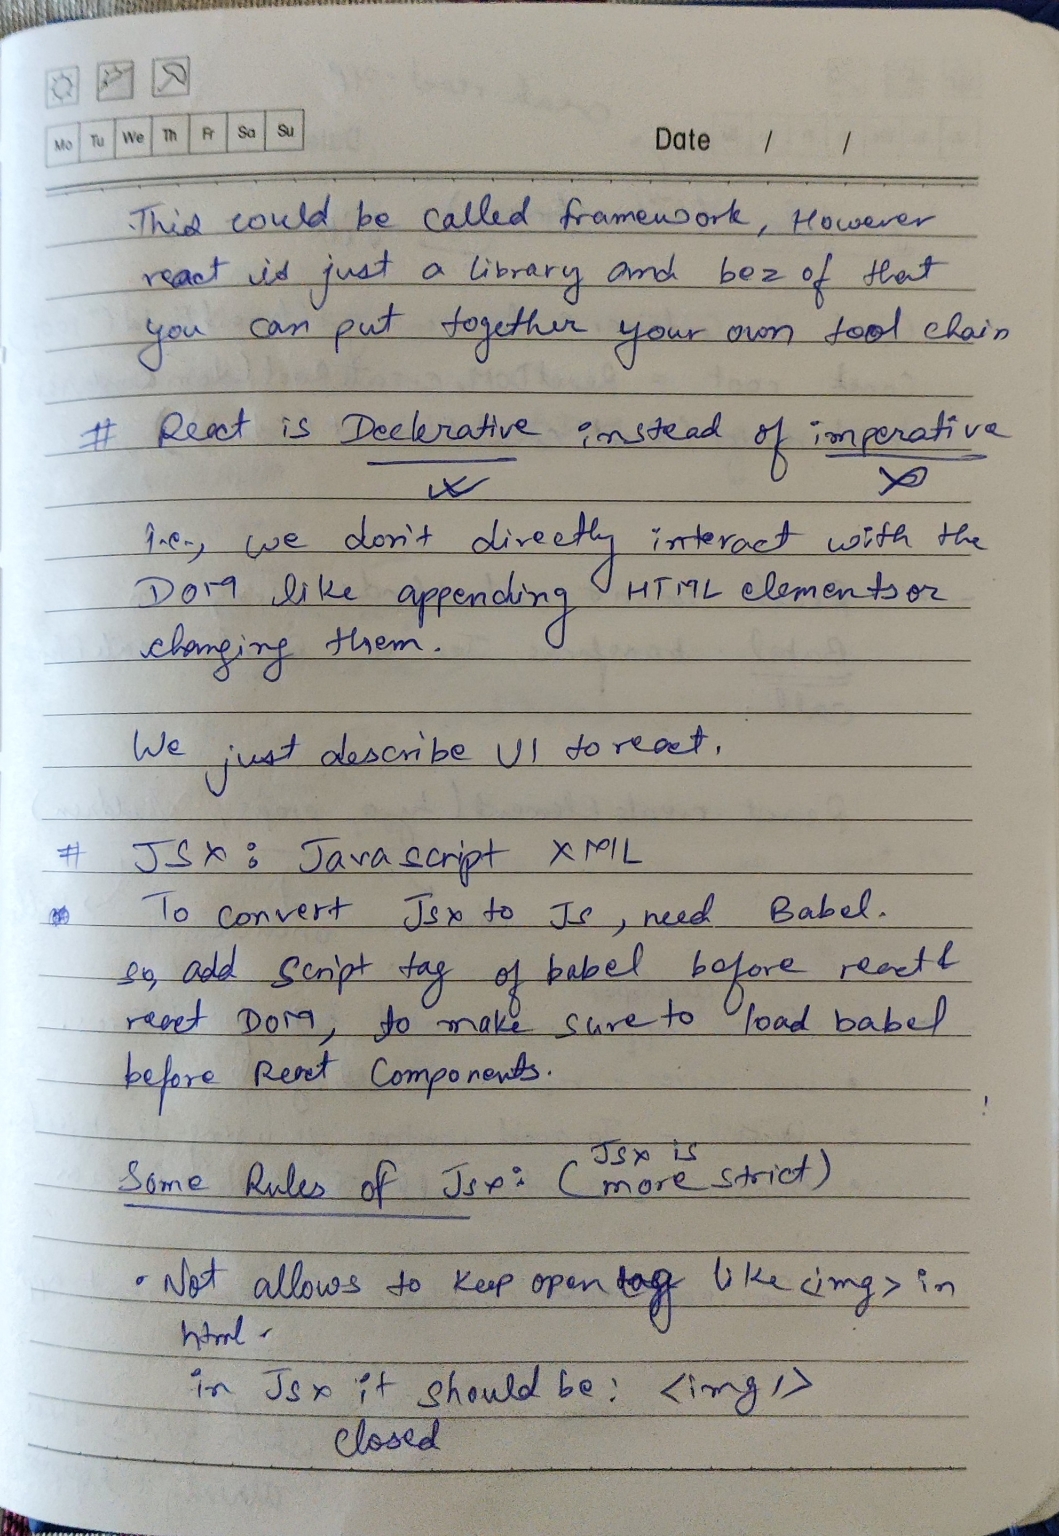 Mo Tu We Th Fr Sa Su
Date / /
This could be called framework, However
react is just a library and bez of that
you can put together your own tool chain
# React is Declerative instead of imperative
i.e., we don't directly interact with the
DOM like appending HTML elements or
changing them.
We just describe UI to react.
# JSX : Javascript XML
To convert Jsx to Js, need Babel.
so, add script tag of babel before react &
react DOM, to make sure to load babel
before React Components.
Some Rules of Jsx: (Jsx is more strict)
• Not allows to keep open tag like <img> in
html.
in Jsx it should be: <img />
closed